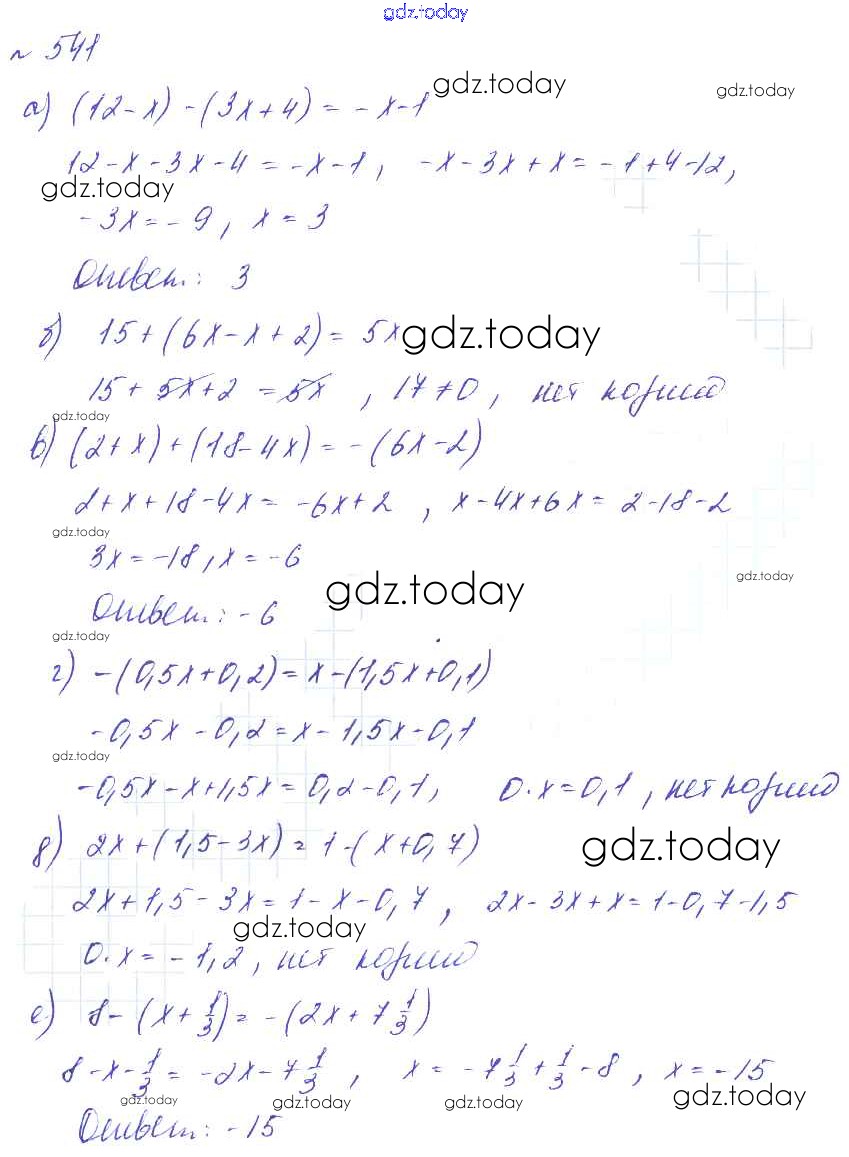 gdz.today
№ 541
а) (12-x) - (3x+4) = -x-1 gdz.today gdz.today
12-x-3x-4 = -x-1, -x-3x+x = -1+4-12,
gdz.today
-3x = -9, x = 3
Ответ: 3
б) 15+(6x-x+2) = 5x gdz.today
15+5x+2 = 5x, 17≠0, нет корней
gdz.today
в) (2+x)+(18-4x) = -(6x-2)
2+x+18-4x = -6x+2, x-4x+6x = 2-18-2
gdz.today
3x = -18, x = -6
gdz.today
gdz.today
Ответ: -6
gdz.today
г) -(0,5x+0,2) = x-(1,5x+0,1)
-0,5x - 0,2 = x - 1,5x - 0,1
gdz.today
-0,5x-x+1,5x = 0,2-0,1, 0·x = 0,1, нет корней
д) 2x+(1,5-3x) = 1-(x+0,7) gdz.today
2x+1,5-3x = 1-x-0,7, 2x-3x+x = 1-0,7-1,5
gdz.today
0·x = -1,2, нет корней
е) 8-(x+1/3) = -(2x+7 1/3)
8-x-1/3 = -2x-7 1/3, x = -7 1/3+1/3-8, x = -15
gdz.today gdz.today gdz.today gdz.today
Ответ: -15